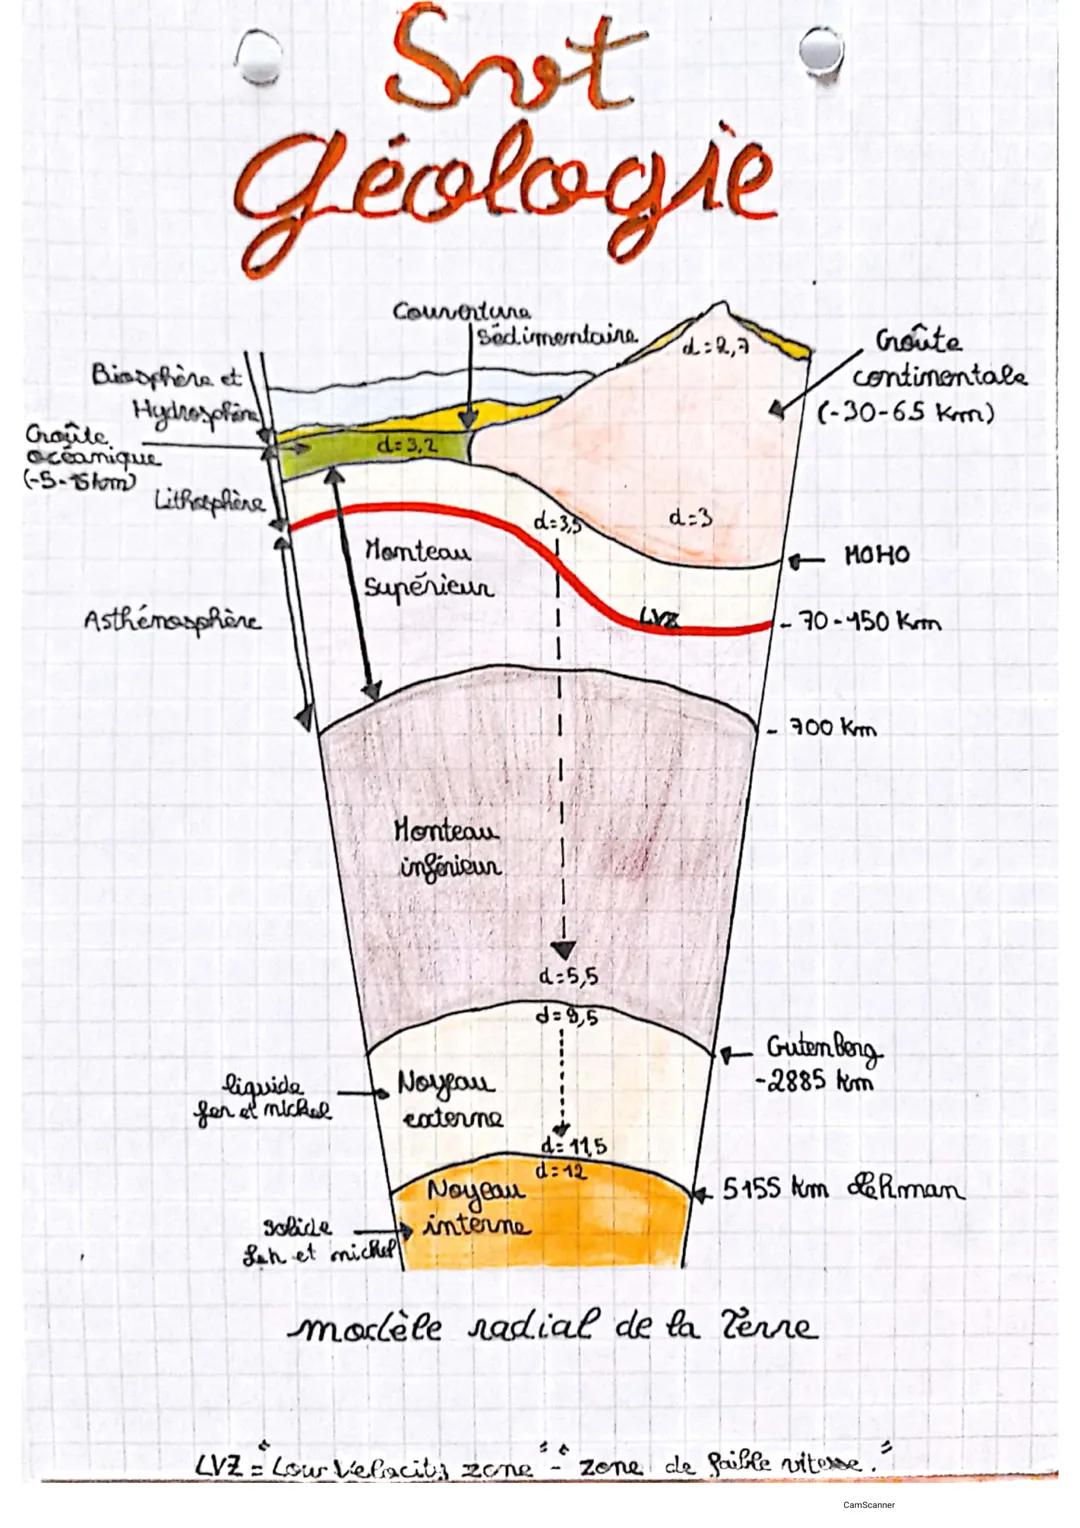 Svt
Géologie
Couverture
Sédimentaire
d=2,7
Croûte
continentale
(-30-65 Km)
Biosphère et
Hydrosphère
Croûte
océanique
(-5-15km)
d=3,2
Lithosphère
d=3,5
d=3
Manteau
Supérieur
MOHO
Asthénosphère
LVZ
- 70-150 Km
- 700 Km
Manteau
inférieur
d=5,5
d=9,5
Gutenberg
-2885 Km
liquide
fer et nickel
Noyau
externe
d=11,5
d=12
Noyau
interne
5155 Km Lehman
solide
fer et nickel
modèle radial de la Terre
LVZ = "Low Velocity zone" - "zone de faible vitesse."
CamScanner